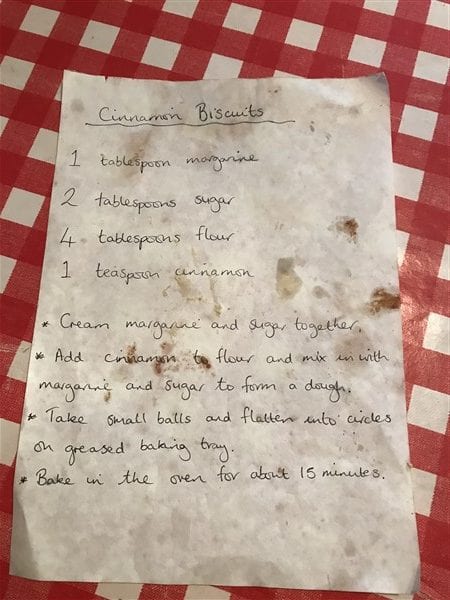 Cinnamon Biscuits
1 tablespoon margarine
2 tablespoons sugar
4 tablespoons flour
1 teaspoon cinnamon
* Cream margarine and sugar together.
* Add cinnamon to flour and mix in with
margarine and sugar to form a dough.
* Take small balls and flatten into circles
on greased baking tray.
* Bake in the oven for about 15 minutes.